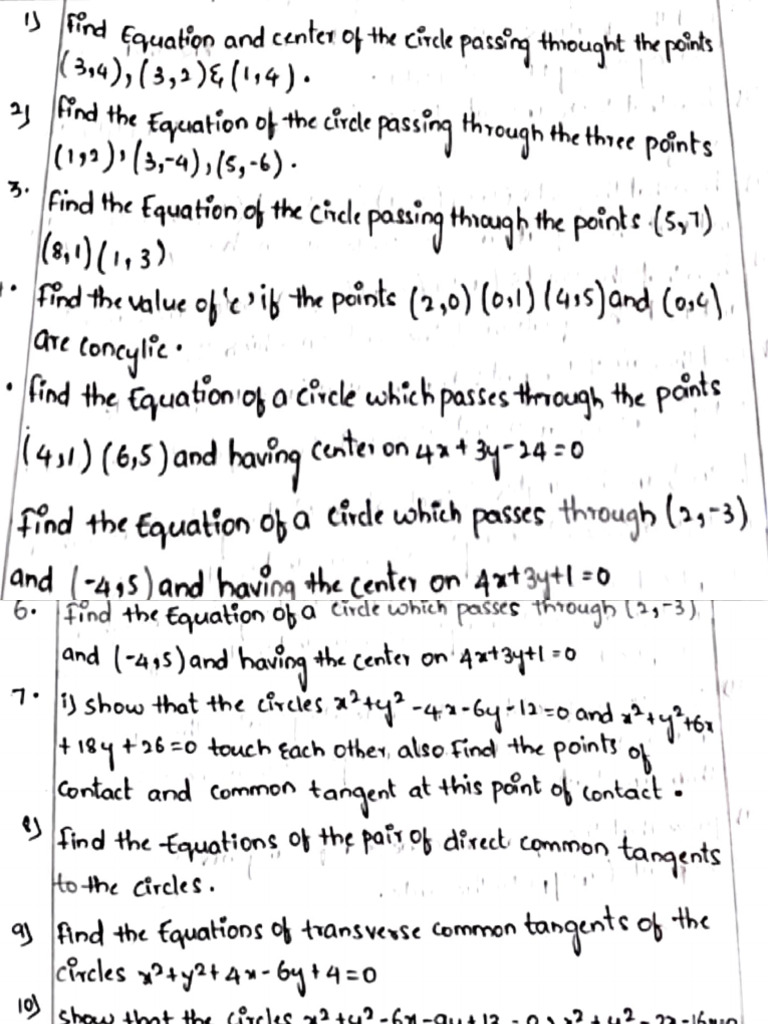 1) Find Equation and center of the circle passing throught the points
(3,4), (3,2) & (1,4).
2) Find the Equation of the circle passing through the three points
(1,2), (3,-4), (5,-6).
3. Find the Equation of the circle passing through the points (5,7)
(8,1) (1,3)
. Find the value of 'c' if the points (2,0) (0,1) (4,5) and (0,c)
are concylic.
. Find the Equation of a circle which passes through the points
(4,1) (6,5) and having center on 4x+3y-24=0
Find the Equation of a circle which passes through (2,-3)
and (-4,5) and having the center on 4x+3y+1=0
6. Find the Equation of a circle which passes through (2,-3)
and (-4,5) and having the center on 4x+3y+1=0
7. i) show that the circles x²+y²-4x-6y-12=0 and x²+y²+6x
+18y+26=0 touch Each other, also Find the points of
contact and common tangent at this point of contact.
8) Find the Equations of the pair of direct common tangents
to the circles.
9) Find the Equations of transverse common tangents of the
circles x²+y²+4x-6y+4=0
10) Show that the circles x²+y²-6x-9y+13